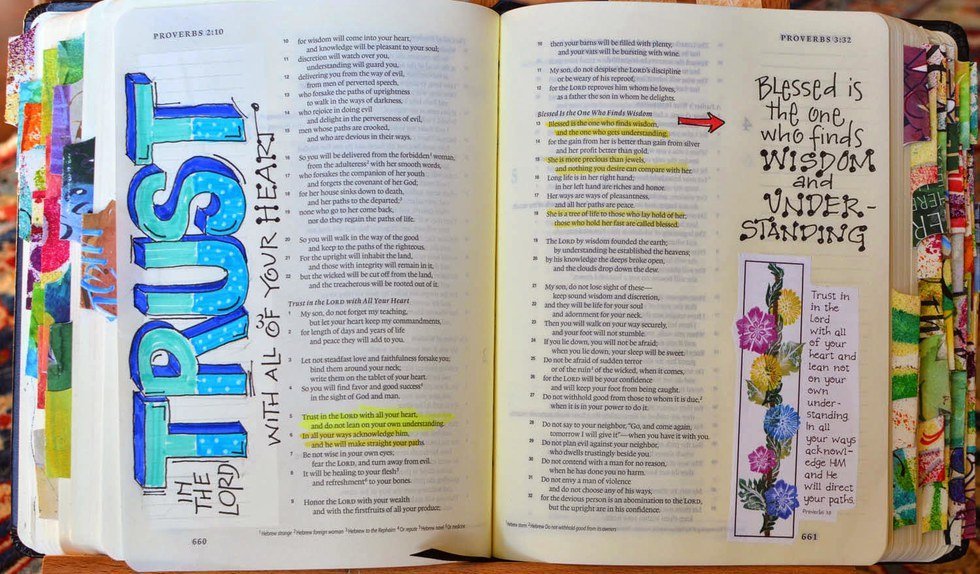 PROVERBS 2:10
TRUST
IN
THE
LORD
WITH ALL OF YOUR HEART.
10 for wisdom will come into your heart,
and knowledge will be pleasant to your soul;
11 discretion will watch over you,
understanding will guard you,
12 delivering you from the way of evil,
from men of perverted speech,
13 who forsake the paths of uprightness
to walk in the ways of darkness,
14 who rejoice in doing evil
and delight in the perverseness of evil,
15 men whose paths are crooked,
and who are devious in their ways.
16 So you will be delivered from the forbidden¹ woman,
from the adulteress² with her smooth words,
17 who forsakes the companion of her youth
and forgets the covenant of her God;
18 for her house sinks down to death,
and her paths to the departed;³
19 none who go to her come back,
nor do they regain the paths of life.
20 So you will walk in the way of the good
and keep to the paths of the righteous.
21 For the upright will inhabit the land,
and those with integrity will remain in it,
22 but the wicked will be cut off from the land,
and the treacherous will be rooted out of it.
Trust in the LORD with All Your Heart
3 1 My son, do not forget my teaching,
but let your heart keep my commandments,
2 for length of days and years of life
and peace they will add to you.
3 Let not steadfast love and faithfulness forsake you;
bind them around your neck;
write them on the tablet of your heart.
4 So you will find favor and good success⁴
in the sight of God and man.
5 Trust in the LORD with all your heart,
and do not lean on your own understanding.
6 In all your ways acknowledge him,
and he will make straight your paths.
7 Be not wise in your own eyes;
fear the LORD, and turn away from evil.
8 It will be healing to your flesh⁵
and refreshment⁶ to your bones.
9 Honor the LORD with your wealth
and with the firstfruits of all your produce;
¹ Hebrew strange ² Hebrew foreign woman ³ Hebrew to the Rephaim ⁴ Or repute ⁵ Hebrew navel ⁶ Or medicine
660
PROVERBS 3:32
10 then your barns will be filled with plenty,
and your vats will be bursting with wine.
11 My son, do not despise the LORD's discipline
or be weary of his reproof,
12 for the LORD reproves him whom he loves,
as a father the son in whom he delights.
Blessed Is the One Who Finds Wisdom
13 Blessed is the one who finds wisdom,
and the one who gets understanding,
14 for the gain from her is better than gain from silver
and her profit better than gold.
15 She is more precious than jewels,
and nothing you desire can compare with her.
16 Long life is in her right hand;
in her left hand are riches and honor.
17 Her ways are ways of pleasantness,
and all her paths are peace.
18 She is a tree of life to those who lay hold of her;
those who hold her fast are called blessed.
19 The LORD by wisdom founded the earth;
by understanding he established the heavens;
20 by his knowledge the deeps broke open,
and the clouds drop down the dew.
21 My son, do not lose sight of these—
keep sound wisdom and discretion,
22 and they will be life for your soul
and adornment for your neck.
23 Then you will walk on your way securely,
and your foot will not stumble.
24 If you lie down, you will not be afraid;
when you lie down, your sleep will be sweet.
25 Do not be afraid of sudden terror
or of the ruin¹ of the wicked, when it comes,
26 for the LORD will be your confidence
and will keep your foot from being caught.
27 Do not withhold good from those to whom it is due,²
when it is in your power to do it.
28 Do not say to your neighbor, "Go, and come again,
tomorrow I will give it"—when you have it with you.
29 Do not plan evil against your neighbor,
who dwells trustingly beside you.
30 Do not contend with a man for no reason,
when he has done you no harm.
31 Do not envy a man of violence
and do not choose any of his ways,
32 for the devious person is an abomination to the LORD,
but the upright are in his confidence.
¹ Hebrew storm ² Hebrew Do not withhold good from its owners
661
BLessed is
the one
who finds
WISDOM
and
UNDER-
STANDING
Trust in
in the
Lord
with all
of your
heart and
lean not
on your
own
under-
standing.
In all
your ways
acknowl-
edge HIM
and He
will direct
your paths.